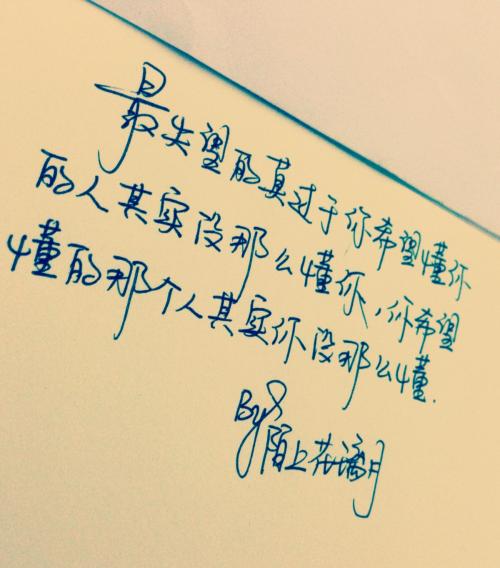 最失望的莫过于你希望懂你
的人其实没那么懂你,你希望
懂的那个人其实你没那么懂.
By 陌上花漓月